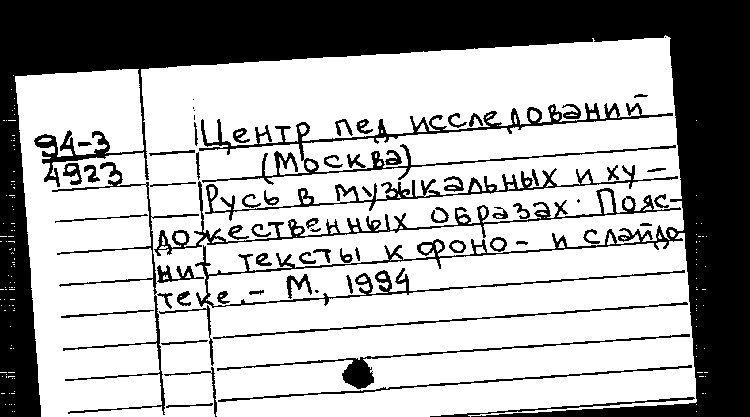 94-3
4923
Центр пед. исследований
(Москва)
Русь в музыкальных и ху-
дожественных образах: Пояс-
нит. тексты к фоно- и слайдо
теке.- М., 1994